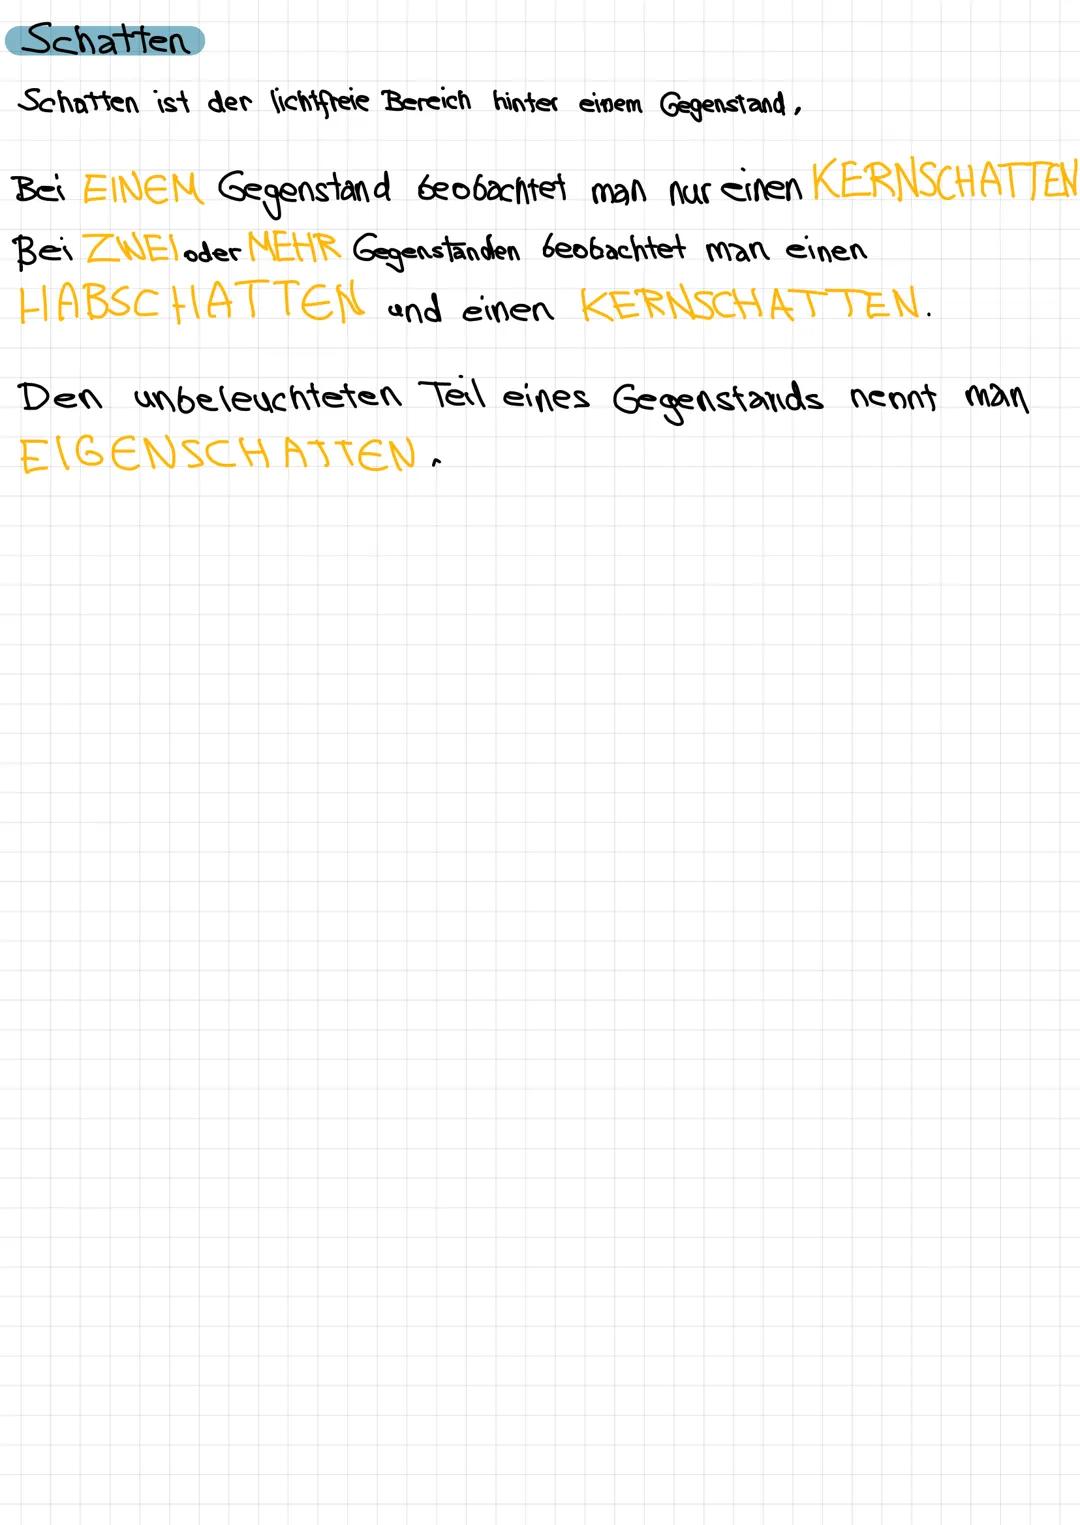 Schatten
Schatten ist der lichtfreie Bereich hinter einem Gegenstand.
Bei EINEM Gegenstand beobachtet man nur einen KERNSCHATTEN
Bei ZWEI oder MEHR Gegenständen beobachtet man einen
HABSCHATTEN und einen KERNSCHATTEN.
Den unbeleuchteten Teil eines Gegenstands nennt man
EIGENSCHATTEN.